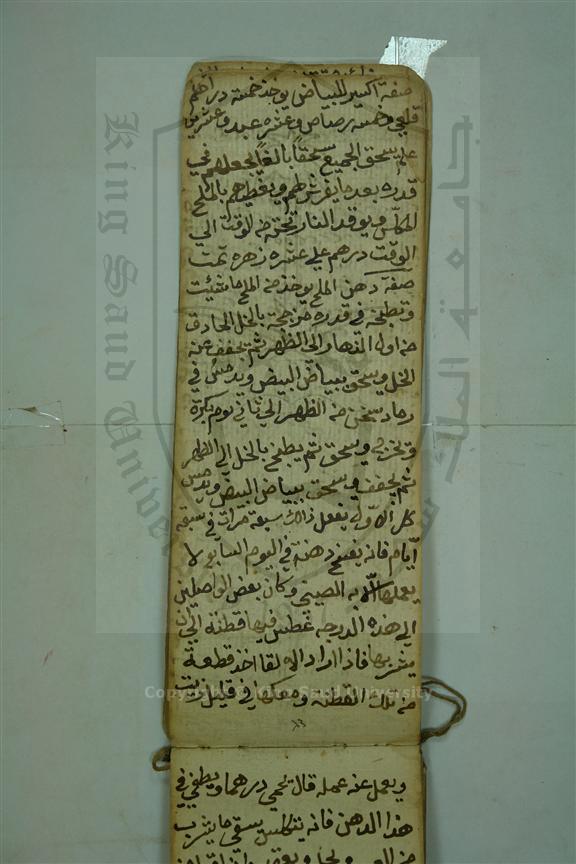 صفة اكسير البياض يوخذ خمسة دراهم
قلعي وخمسة رصاص وعشره عبد وعشرين
علم يسحق الجميع سحقاً بالغاً يجعلهم في
قدره بعد ما يفرش لهم ويغطيهم بالملح
المكلس ويوقد النار تحته من الوقت الي
الوقت درهم علي عشره زهره تمت
صفة دهن الملح يوخذ من الملح ما شئت
وتطبخه في قدره مزججة بالخل الحادق
من اول النهار الى الظهر ثم يجفف عنه
الخل ويسحق ببياض البيض ويدمس في
رماد سخن من الظهر الي ثاني يوم بكرة
وتخرجه ويسحق ثم يطبخ بالخل الي الظهر
ثم يجفف ويسحق ببياض البيض ويدمس
كل الاولي يفعل ذالك سبعة مرات في سبعة
أيام فانه يفتح دهنه في اليوم السابع لا
به الصيني وكان بعض الواصلين
الي هذه الدرجه غطس فيها قطنة الي ان
يشربها فاذا اراد الالقا اخذ قطعة
من تلك القطنه ومعكها في قليل زيت
ويعمل عنه عمله قال يحمي درهما ويطفي في
هذا الدهن فانه يتكلس يسقي ما يشرب
Copyright © King Saud University
King Saud University
جامعة الملك سعود